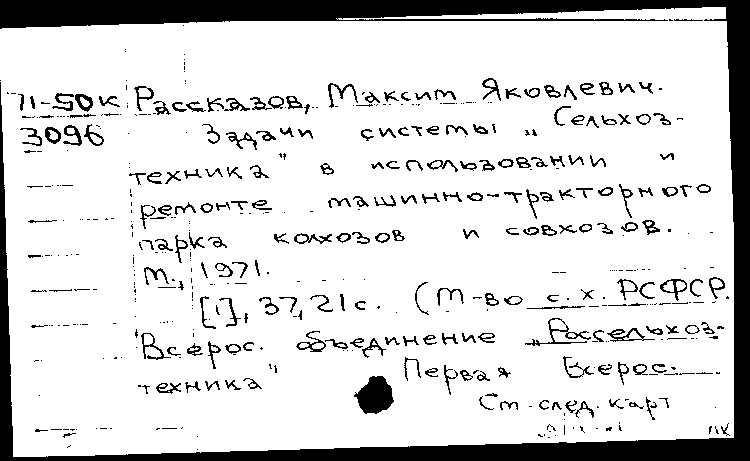 71-50к Рассказов, Максим Яковлевич.
3096 Задачи системы „Сельхоз-
техника" в использовании и
ремонте машинно-тракторного
парка колхозов и совхозов.
М., 1971.
[1], 37, 21 с. (М-во с. х. РСФСР.
Всерос. объединение „Россельхоз-
техника" Первая Всерос.
См. след. карт